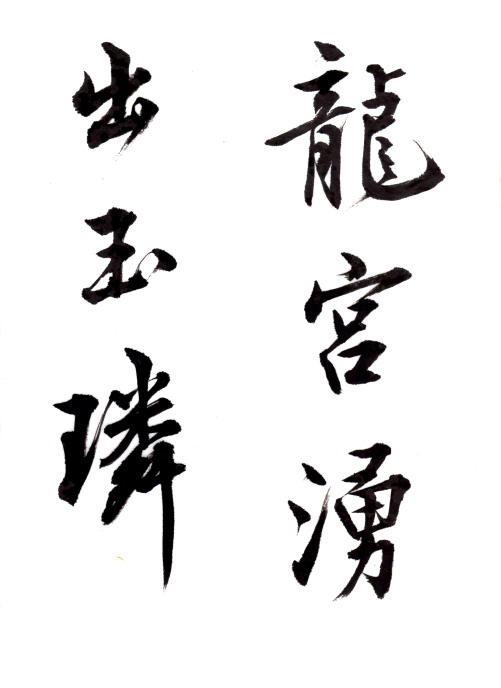 龍宮湧
出玉璘